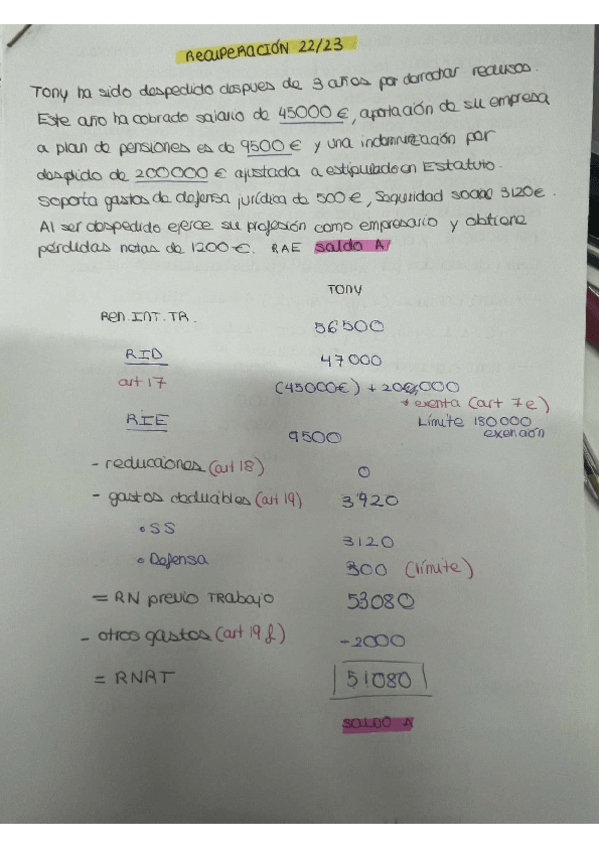 RECUPERACIÓN 22/23
Tony ha sido despedido despues de 3 años por derrochar recursos.
Este año ha cobrado salario de 45000 €, aportación de su empresa
a plan de pensiones es de 9500 € y una indemnización por
despido de 200000 € ajustada a estipulado en Estatuto.
Soporta gastos de defensa jurídica de 500 €, Seguridad social 3120€.
Al ser despedido ejerce su profesión como empresario y obtiene
pérdidas netas de 1200 €. RAE saldo A
TONY
Ren. INT. TR. 56500
RID 47000
art 17 (45000€) + 200,000
* exenta (art 7e)
RIE 9500 Límite 180000
exención
- reducciones (art 18) 0
- gastos deducibles (art 19) 3420
• SS 3120
• Defensa 300 (límite)
= RN previo TRABAJO 53080
- otros gastos (art 19 f) -2000
= RNRT 51080
SALDO A